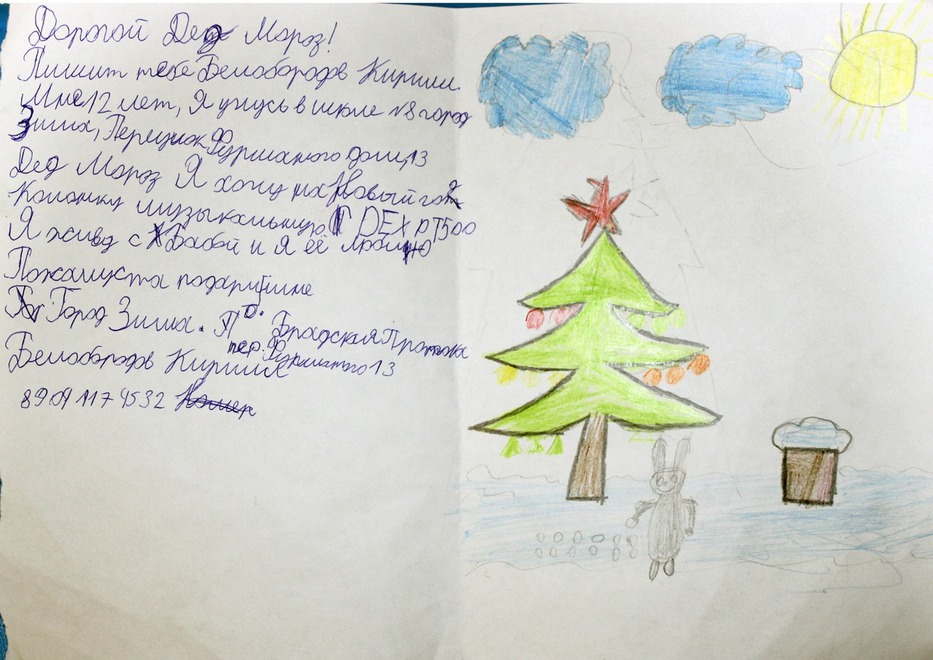 Дорогой Дед Мороз!
Пишит тебе Белобородов Кирилл.
Мне 12 лет, Я учусь в школе №8 город
Зима, Переулок Фурманого дом, 13
Дед Мороз Я хочу на Новый год
Колонку музыкальную DEXP T500
Я живу с Бабой и я её люблю
Пожалуста подари мне
Город Зима. П.О. Братская Протока
пер. Фурманого 13
Белобородов Кирилл
8904 117 4532